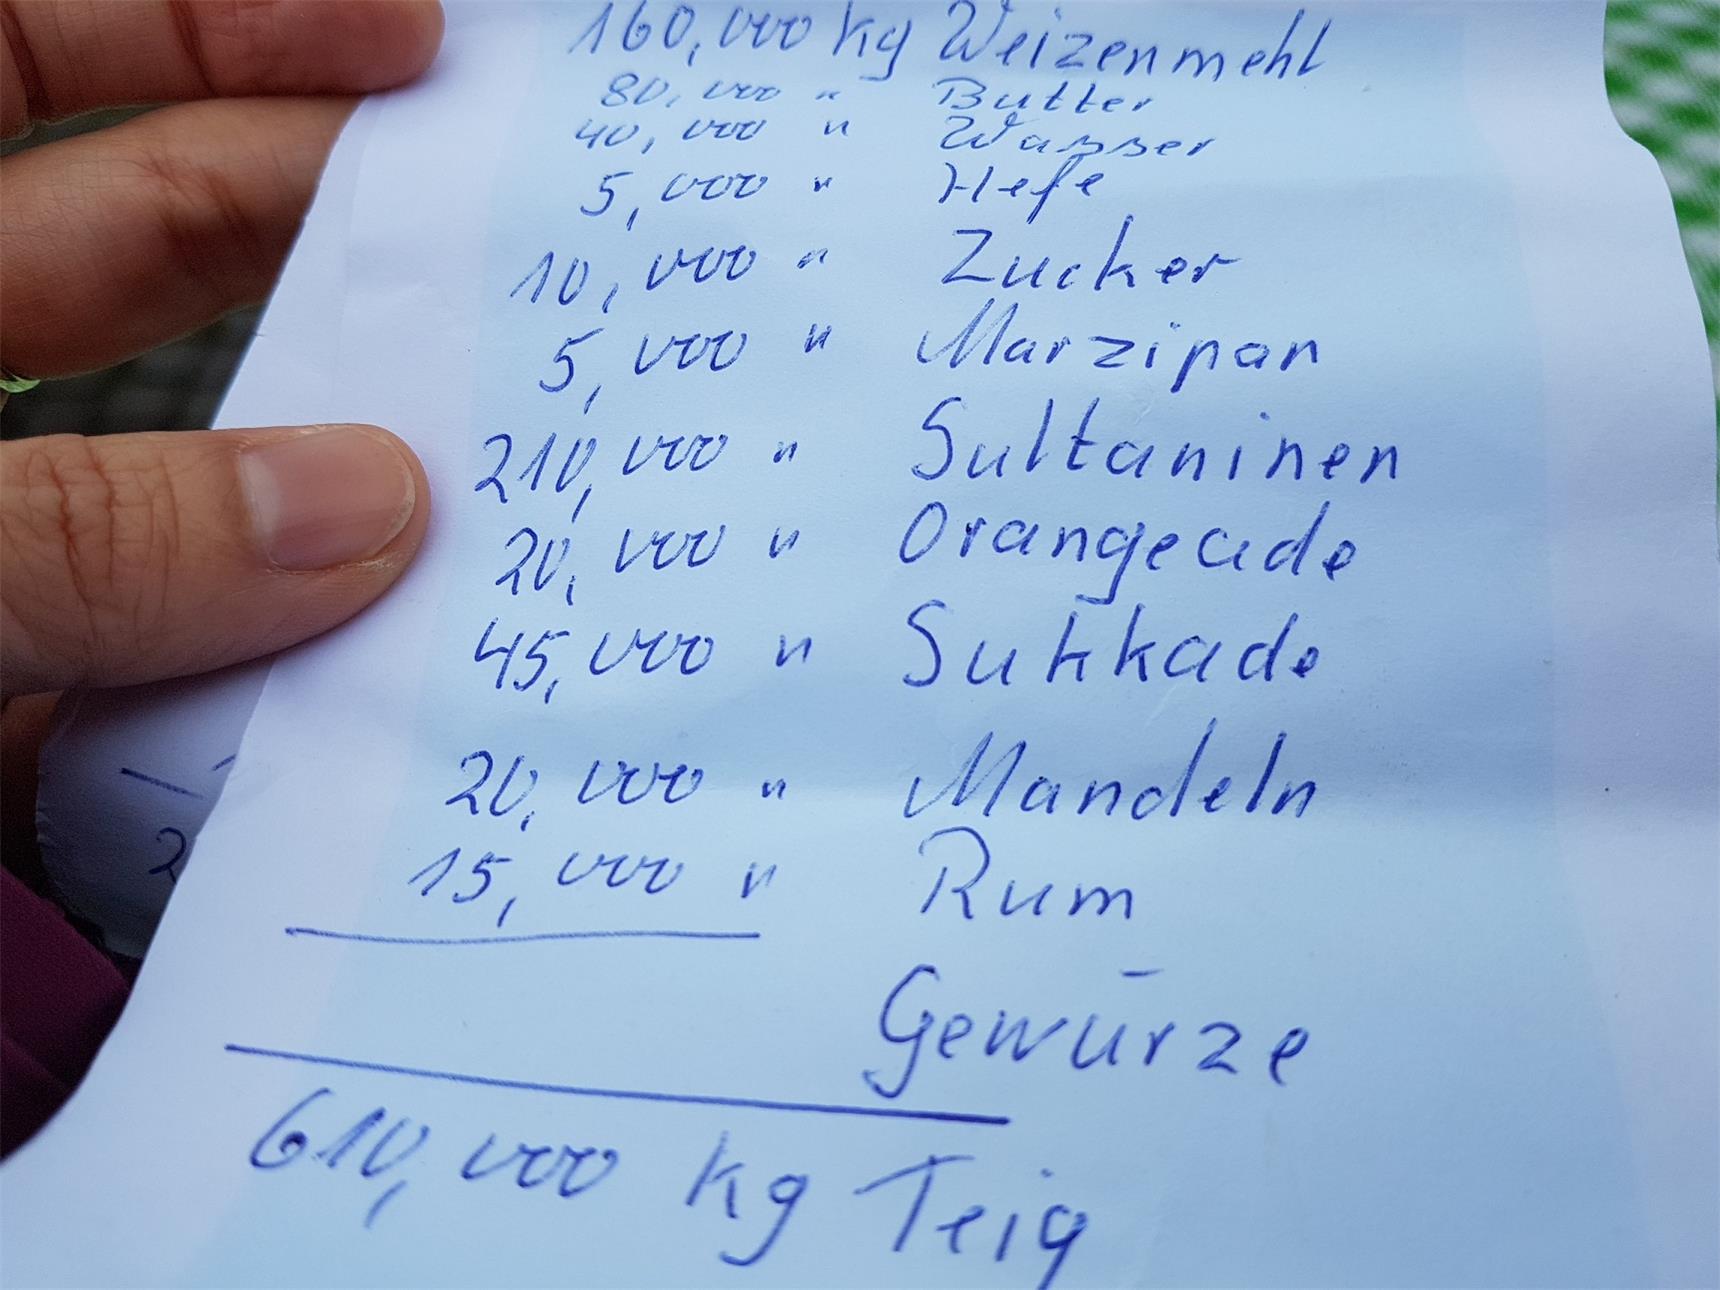 160,000 kg Weizenmehl
80,000 " Butter
40,000 " Wasser
5,000 " Hefe
10,000 " Zucker
5,000 " Marzipan
210,000 " Sultaninen
20,000 " Orangeade
45,000 " Sukkade
20,000 " Mandeln
15,000 " Rum
Gewürze
610,000 kg Teig
2